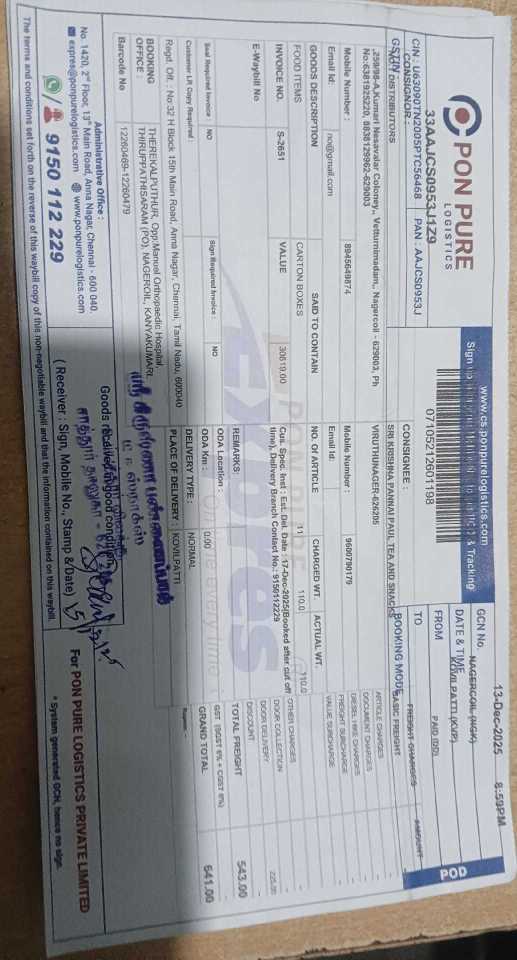 PON PURE
LOGISTICS
www.cs.ponpurelogistics.com
& Tracking
07105212601198
13-Dec-2025 8:59PM
POD
GCN No.
DATE & TIME
NAGERCOIL (NGK)
FROM
KOVILPATTI (KVP)
TO
PAID (DD)
BOOKING MODE
33AAJCS0953J1Z9
CIN : U63090TN2005PTC56468 PAN : AAJCS0953J
GSTIN
CONSIGNOR :
NOVI DISTRIBUTORS
,259/98-A,Kumari Nesavalar Coloney,, Vetturnimadam,, Nagercoil - 629003, Ph
No:6381925220, 8838129062-629003
Mobile Number : 8945649874
Email Id: no@gmail.com
CONSIGNEE :
SRI KRISHNA PANNAI PAUL TEA AND SNACKS
VIRUTHUNAGER-626205
Mobile Number : 9600790179
Email Id:
GOODS DESCRIPTION SAID TO CONTAIN NO. Of ARTICLE CHARGED WT. ACTUAL WT.
FOOD ITEMS CARTON BOXES 11 110.0 110.0
INVOICE NO. S-2651 VALUE 30619.00
Cus. Spec. Inst : Est. Del. Date : 17-Dec-2025(Booked after cut off
time), Delivery Branch Contact No.: 9150112229
E-Waybill No
REMARKS:
Seal Required Invoice : NO Sign Required Invoice : NO
ODA Location :
Customer LR Copy Required :
ODA Km : 0.00
Regd. Off. : No:32 H Block 15th Main Road, Anna Nagar, Chennai, Tamil Nadu, 600040
DELIVERY TYPE : NORMAL
BOOKING
OFFICE :
THEREKALPUTHUR, Opp:Manual Orthopaedic Hospital,
THIRUPPATHISARAM (PO), NAGEROIL, KANYAKUMARI,
PLACE OF DELIVERY : KOVILPATTI
Barcode No 12260469-12260479
FREIGHT CHARGES AMOUNT
BASIC FREIGHT
ARTICLE CHARGES
DOCUMENT CHARGES
DIESEL HIKE CHARGES
FREIGHT SURCHARGE
VALUE SURCHARGE
OTHER CHARGES
DOOR COLLECTION
DOOR DELIVERY
DISCOUNT
TOTAL FREIGHT 543.00
GST (SGST 9% + CGST 9%)
GRAND TOTAL 641.00
Rupees. -
Administrative Office :
No. 1420, 2nd Floor, 13th Main Road, Anna Nagar, Chennai - 600 040.
expres@ponpurelogistics.com www.ponpurelogistics.com
9150 112 229
Goods received in good condition
( Receiver : Sign, Mobile No., Stamp & Date)
For PON PURE LOGISTICS PRIVATE LIMITED
* System generated GCN, hence no sign.
The terms and conditions set forth on the reverse of this waybill copy of this non-negotiable waybill and that the information contained on this waybill.